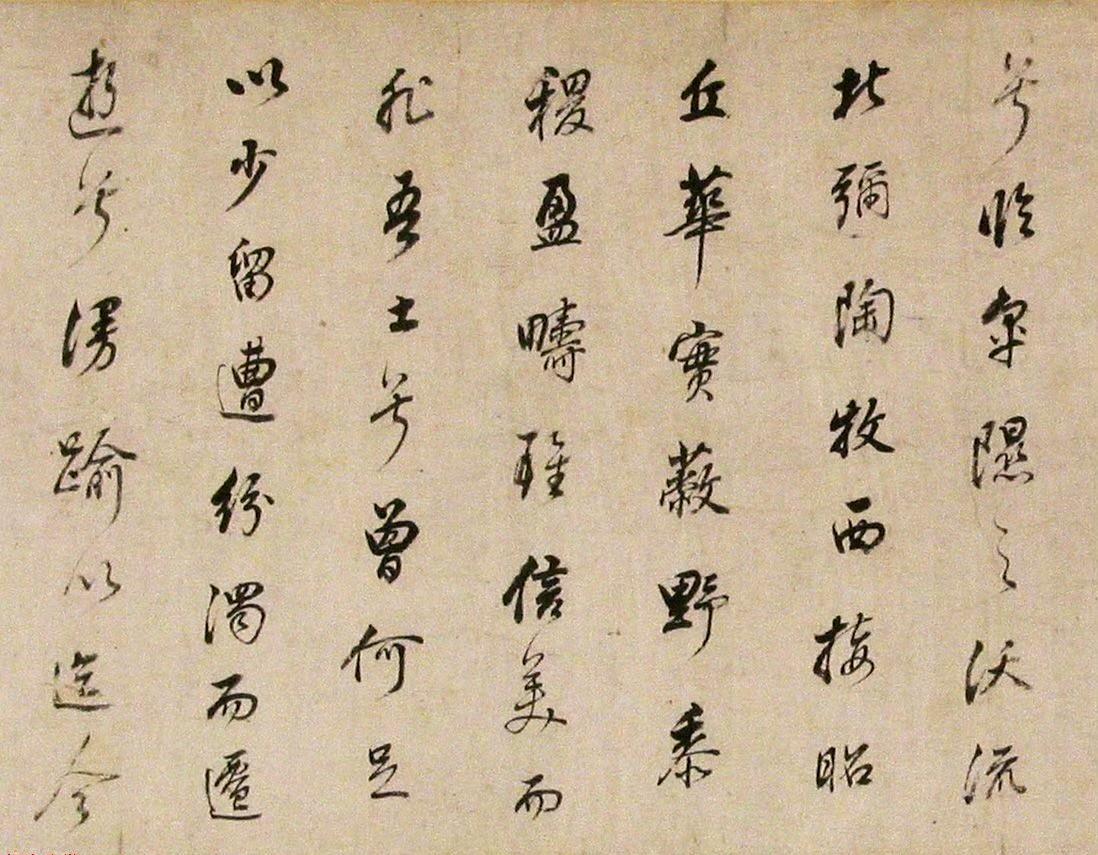 兮臨皐隰之沃流
北彌陶牧西接昭
丘華實蔽野黍
稷盈疇雖信美而
非吾土兮曾何足
以少留遭紛濁而遷
逝兮漫踰以迄今